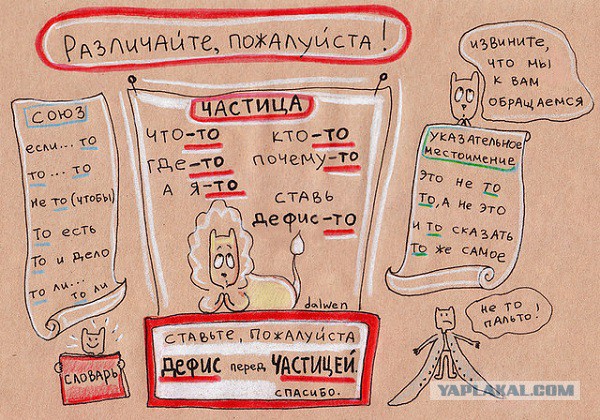 Различайте, пожалуйста!
СОЮЗ
если... то
то ... то
не то (чтобы)
то есть
то и дело
то ли... то ли
ЧАСТИЦА
что-то кто-то
где-то почему-то
а я-то
ставь
дефис-то
dalwen
Извините,
что мы
к вам
обращаемся
указательное
местоимение
это не то
то, а не это
и то сказать
то же самое
Ставьте, пожалуйста
дефис перед частицей.
спасибо.
словарь
не то
пальто!
YAPLAKAL.COM